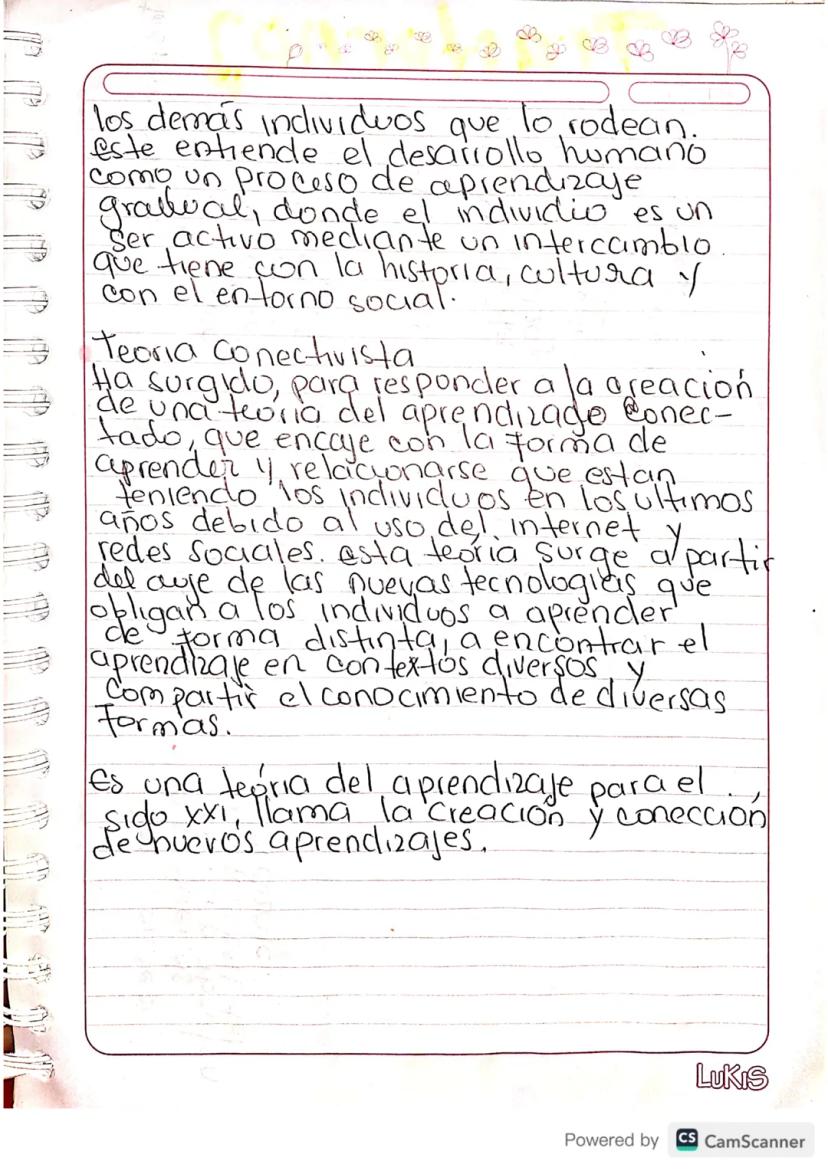 los demás individuos que lo rodean.
Este entiende el desarrollo humano
como un proceso de aprendizaje
gradual, donde el individio es un
ser activo mediante un intercambio
que tiene con la historia, cultura y
con el entorno social.
Teoria conectivista
Ha surgido, para responder a la creación
de una teoria del aprendizage conec-
tado, que encaje con la forma de
aprender y relacionarse que estan
teniendo los individuos en los ultimos
años debido al uso del internet y
redes sociales. esta teoria surge a partir
del auje de las nuevas tecnologias que
obligan a los individuos a aprender
de forma distinta, a encontrar el
aprendizaje en contextos diversos y
compartir el conocimiento de diversas
formas.
Es una teoria del aprendizaje para el
siglo XXI, llama la creación y conección
de nuevos aprendizajes.
LuKIS
Powered by CS CamScanner